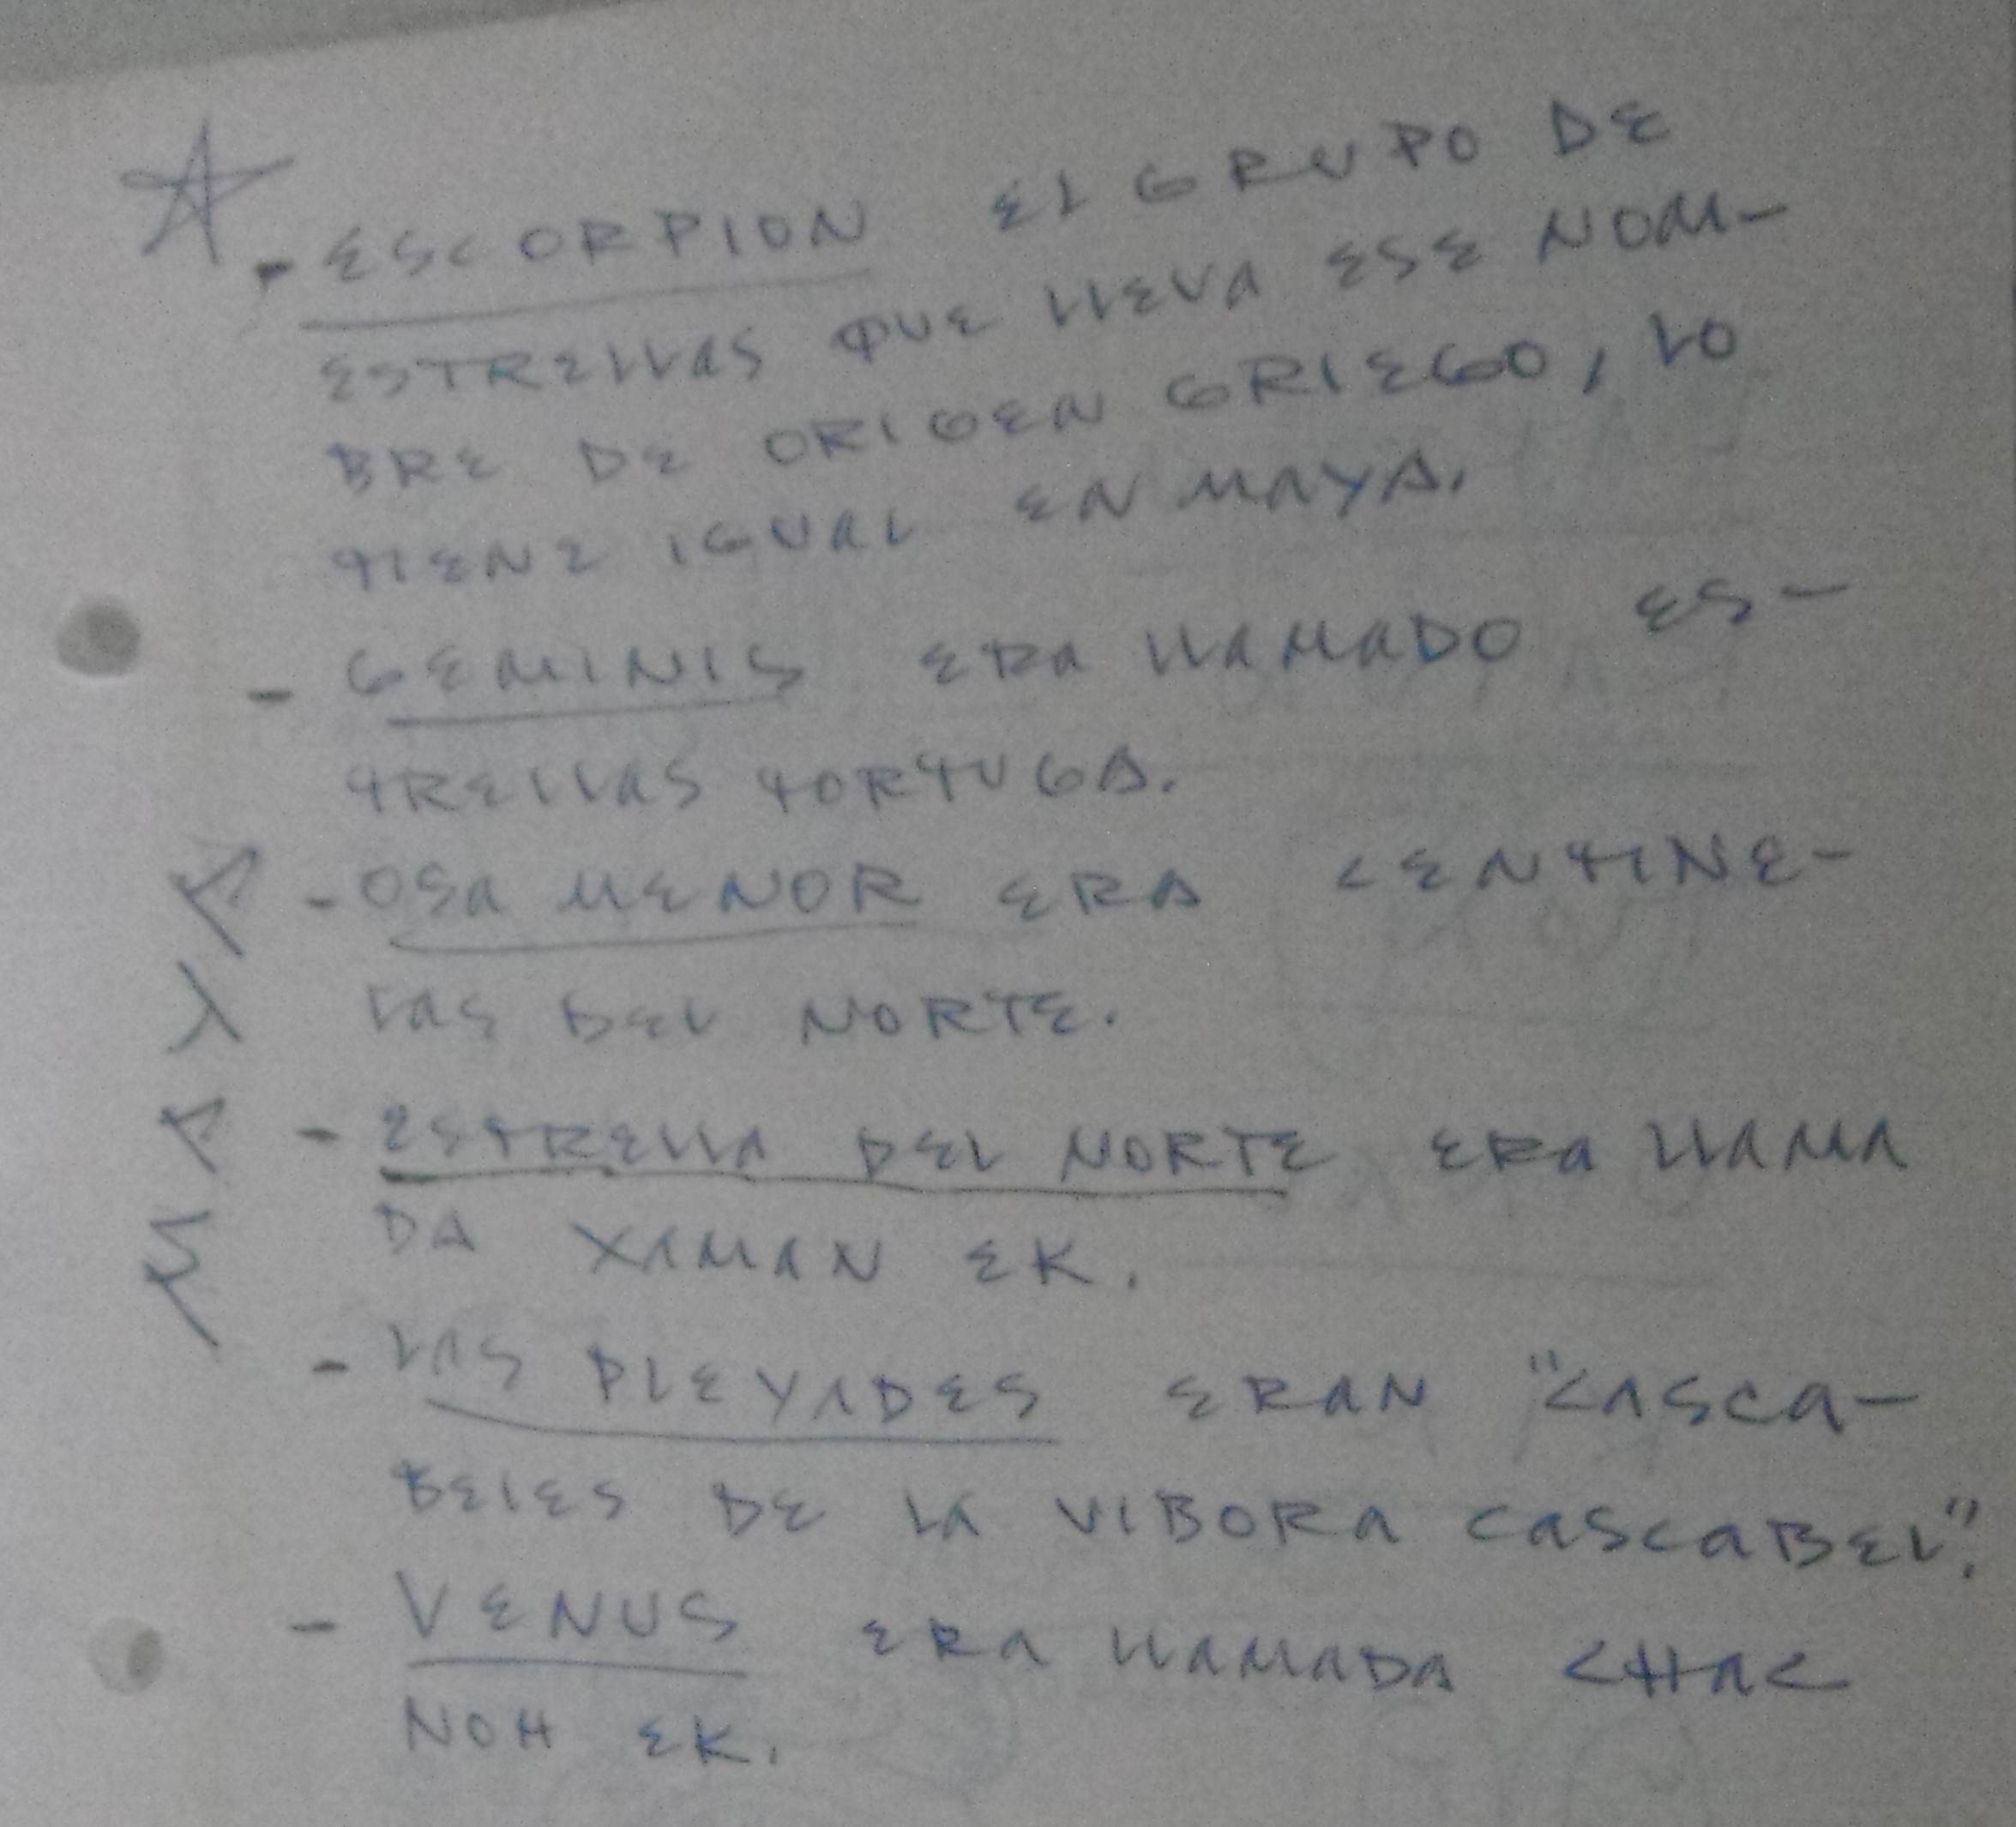 - ESCORPION EL GRUPO DE
ESTRELLAS QUE LLEVA ESE NOM-
BRE DE ORIGEN GRIEGO, LO
TIENE IGUAL EN MAYA.
- GEMINIS ERA LLAMADO ES-
TRELLAS TORTUGA.
- OSA MENOR ERA CENTINE-
LAS DEL NORTE.
- ESTRELLA DEL NORTE ERA LLAMA
DA XAMAN EK.
- LAS PLEYADES ERAN "CASCA-
BELES DE LA VIBORA CASCABEL".
- VENUS ERA LLAMADA CHAC
NOH EK.